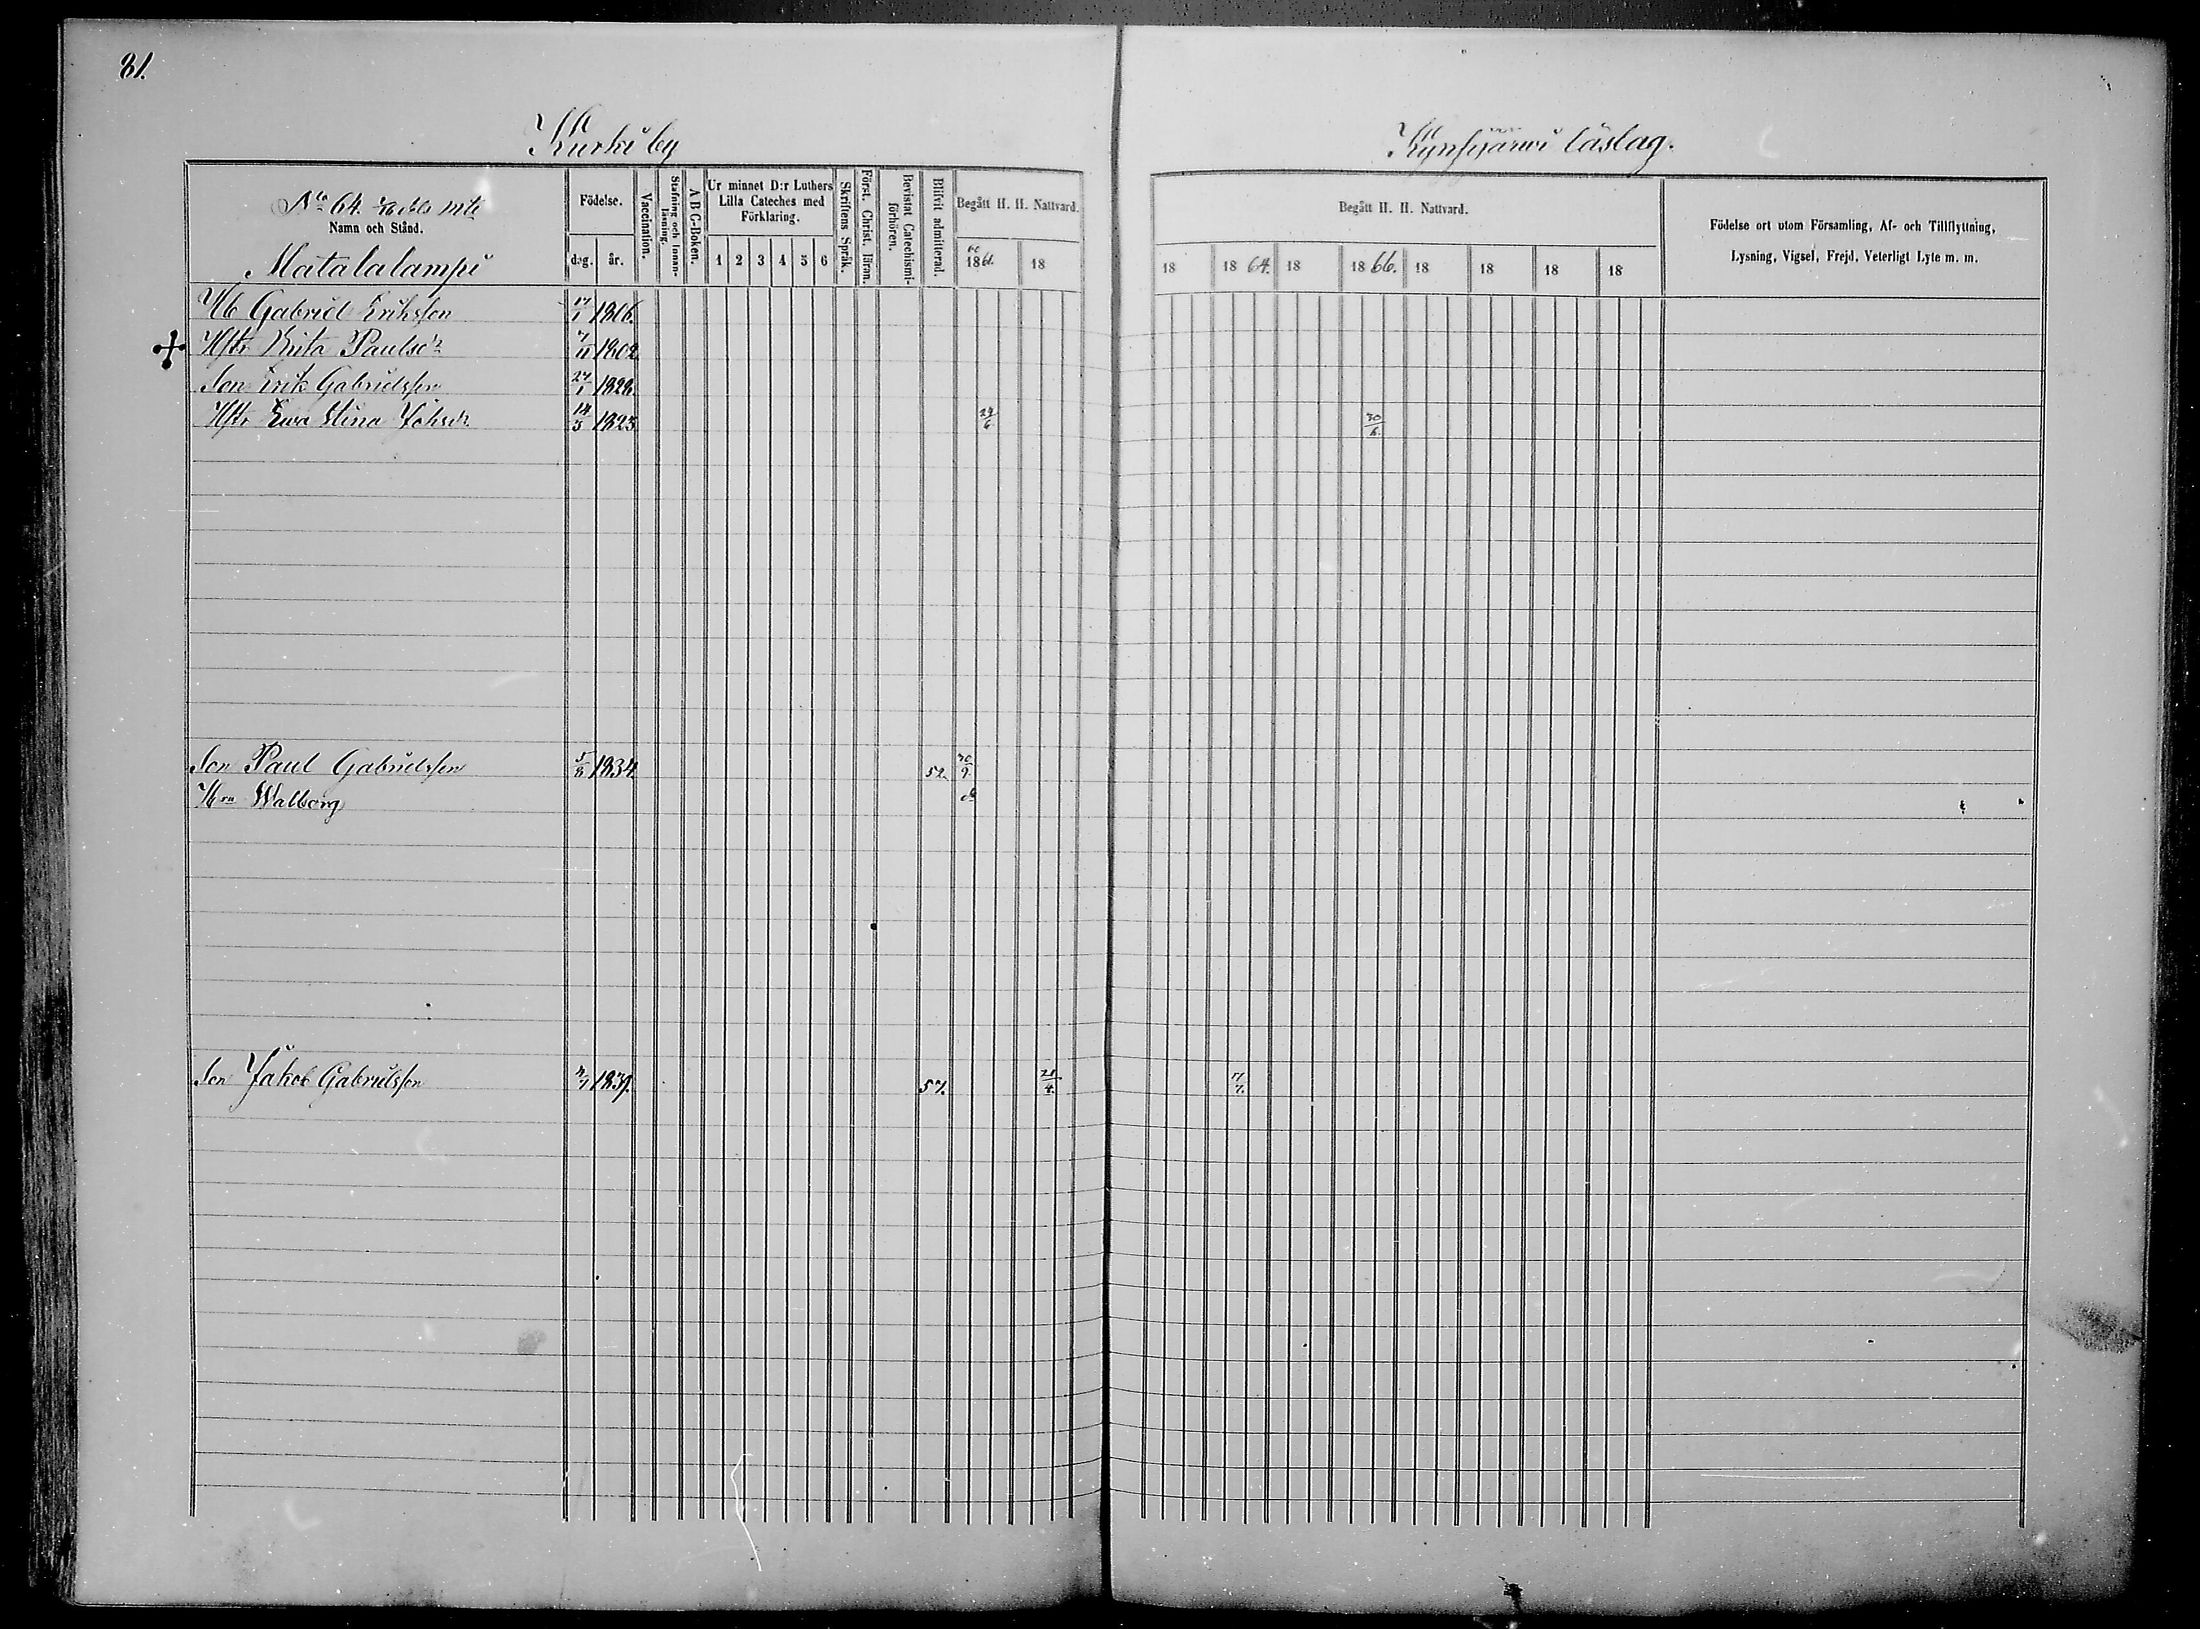 81.
Kurki by
Kynsijärwi läslag.
No 64. mtl
Namn och Stånd.
Matalalampi
Födelse.
dag. år.
Vaccination.
Stafning och Innanläsning.
A B C-Boken.
Ur minnet D:r Luthers Lilla Cateches med Förklaring.
1 2 3 4 5 6
Skriftens Språk.
Först. Christ. läran.
Bevistat Catechismiförhören.
Blifvit admitterad.
Begått H. H. Nattvard.
60
1861. 18
Begått H. H. Nattvard.
18 1864. 18 1866. 18 18 18 18
Födelse ort utom Församling, Af- och Tillflyttning,
Lysning, Vigsel, Frejd, Veterligt Lyte m. m.
Gabriel Eriksson 1806.
Hstr Brita Paulsdr 7/11 1802
Son Erik Gabrielsson 27/1 1828.
Hstr Ewa Stina Johsdr 14/3 1823 24/6 30/6.
Son Paul Gabrielsson 5/8 1834. 52. 30/9.
Walborg
Son Jakob Gabrielsson 57. 21/4. 17/7.